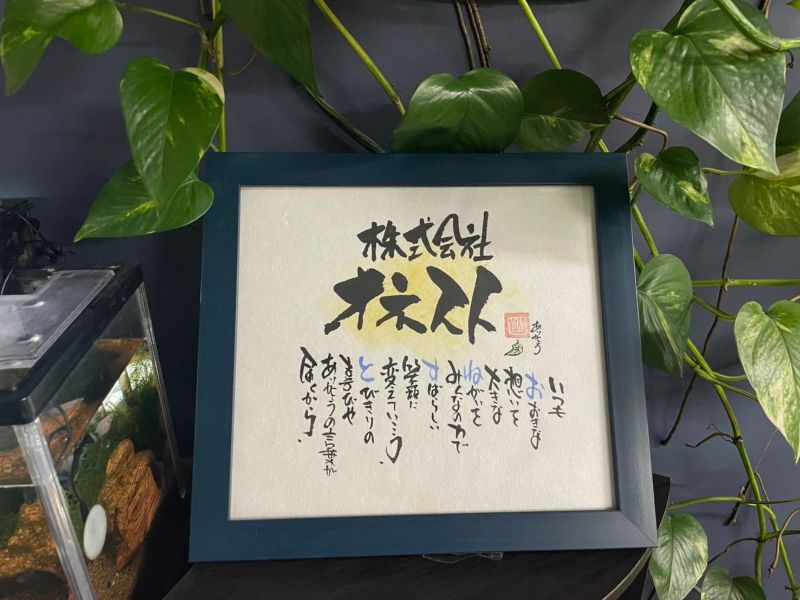 株式会社
オネスト
ありがとう
いつも
おおきな
想いを
大きな
ねがいを
みんなの力で
すばらしい
笑顔に
変えていこう。
とびきりの
喜びや
ありがとうの言葉が
届くから。